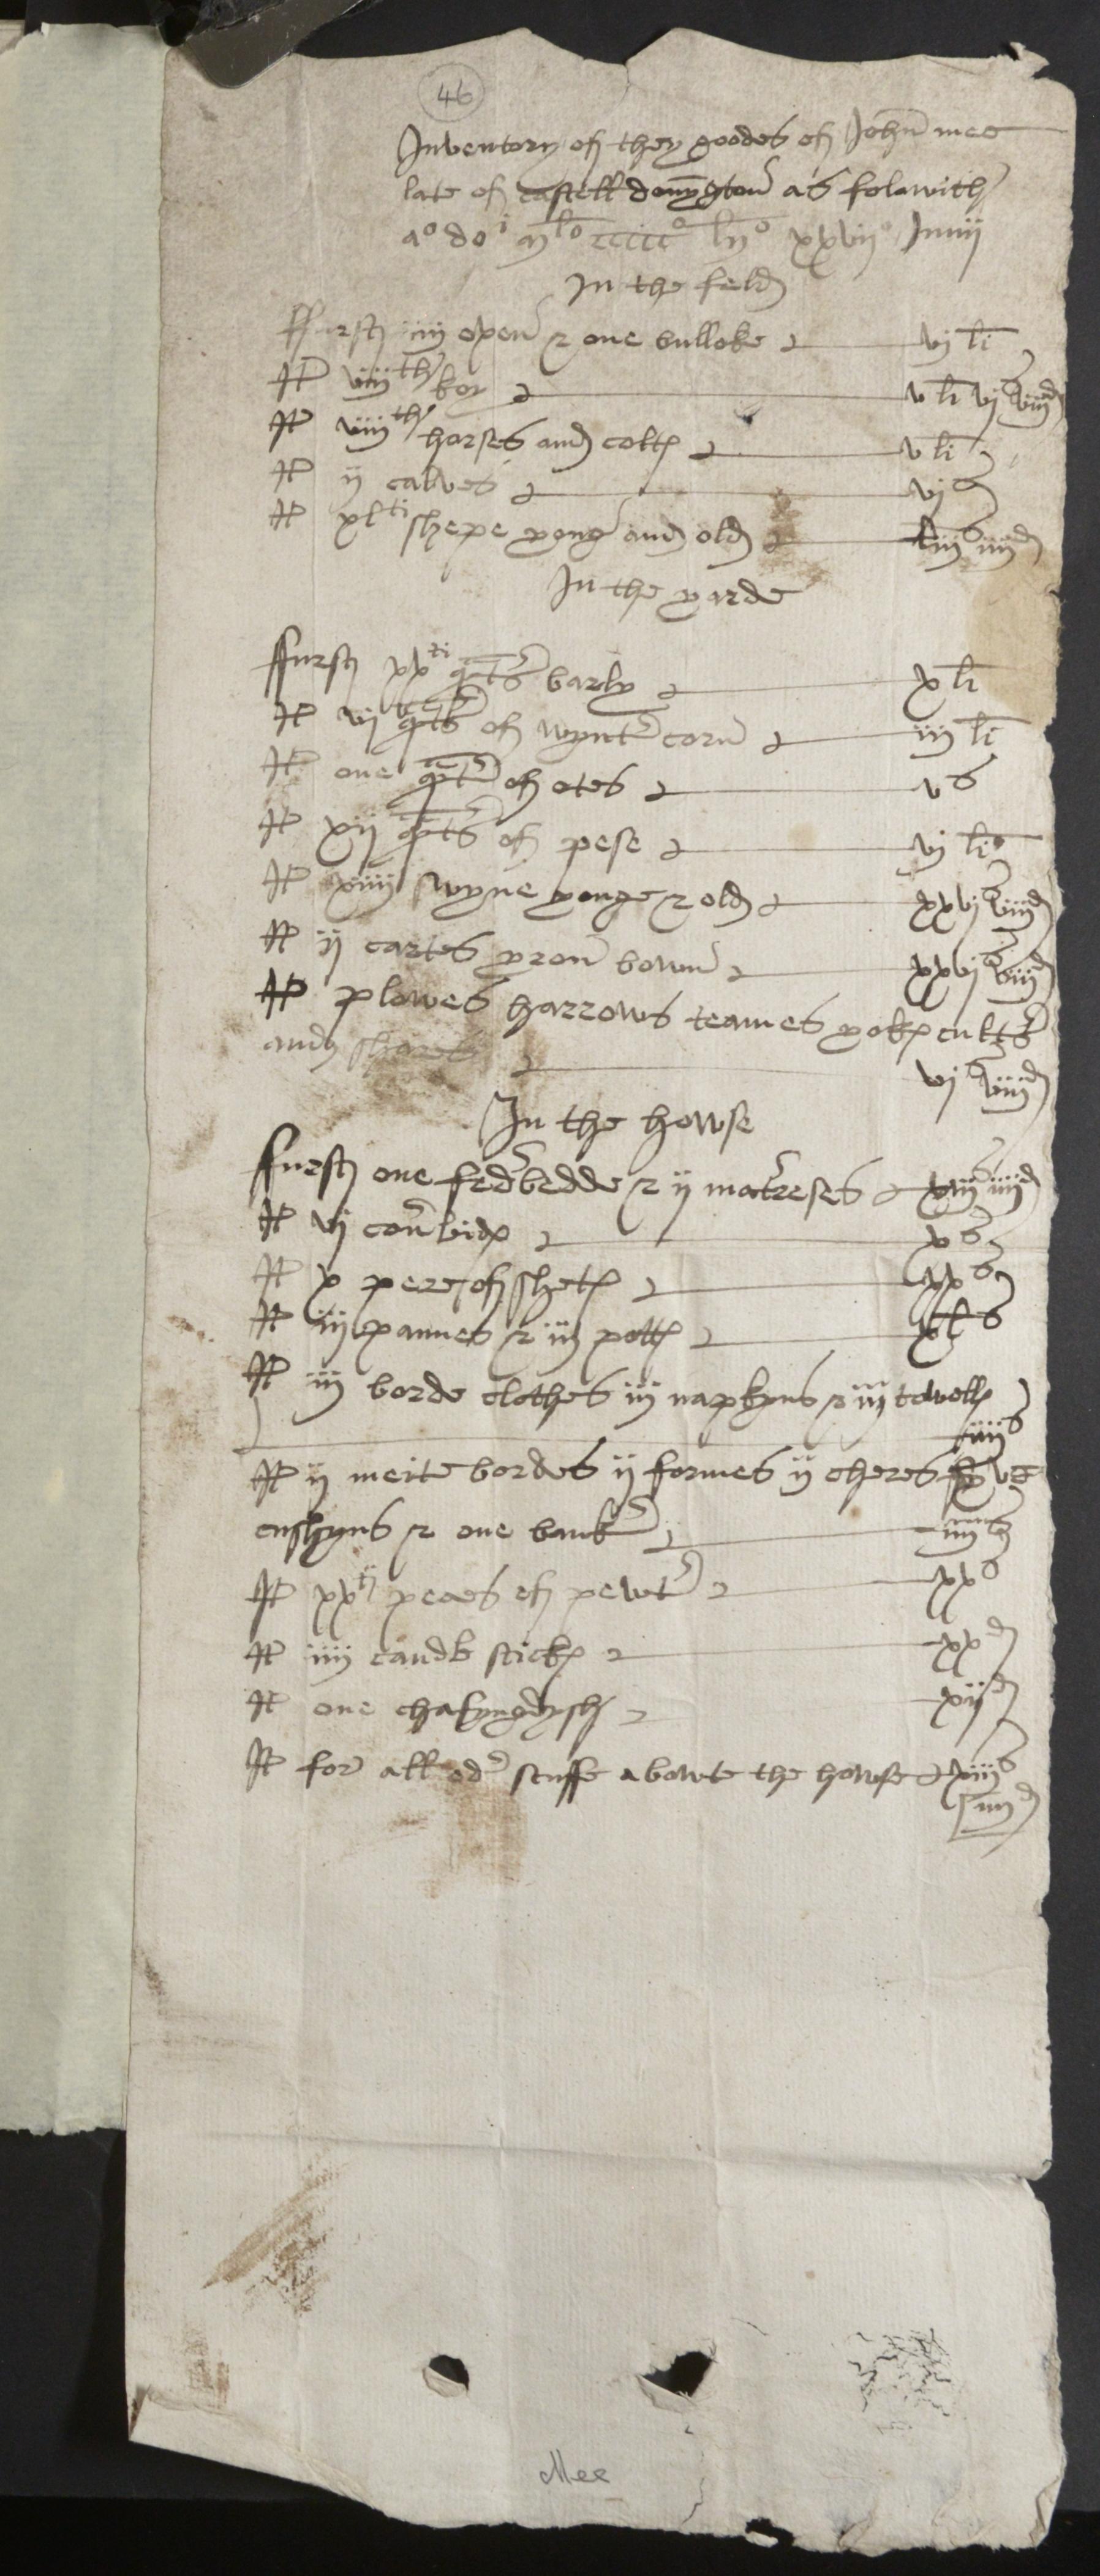 46
Inventory of they goodes of John mee
late of castell donygton as folowith
ao doi mlo ccccco lijo xxvijo Junij
In the feld
ffurst iiij oxen & one bulloke vj li
It viijth key v li vjs viijd
It viijth horses and colts v li
It ij calves vjs
It xlti shepe yong and old liijs iiijd
In the yarde
ffurst xxti qrts barly x li
It vj qrts of wynter corn iij li
It one qrt of otes vs
It xij qrts of pese vj li
It xiiij swyne yonge & old xxvjs viijd
It ij cartes yron bown xxvjs viijd
It plowes harrows teames yokes cults
and shares vjs viijd
In the howse
ffurst one fedrbedde & ij matreses xiijs iiijd
It vj covrlids xs
It x pere of shets xxs
It iij pannes & iij potts xls
It iij borde clothes iij napkyns & iij towells
iiijs
It ij meite bordes ij formes ij cheres
cushyns & one bankr iiijs
It xxti peces of pewtr xxs
It iiij candlsticks xxd
It one chafyngdysh xijd
It for all odr stuffe abowte the howse xiijs
iiijd
Mee